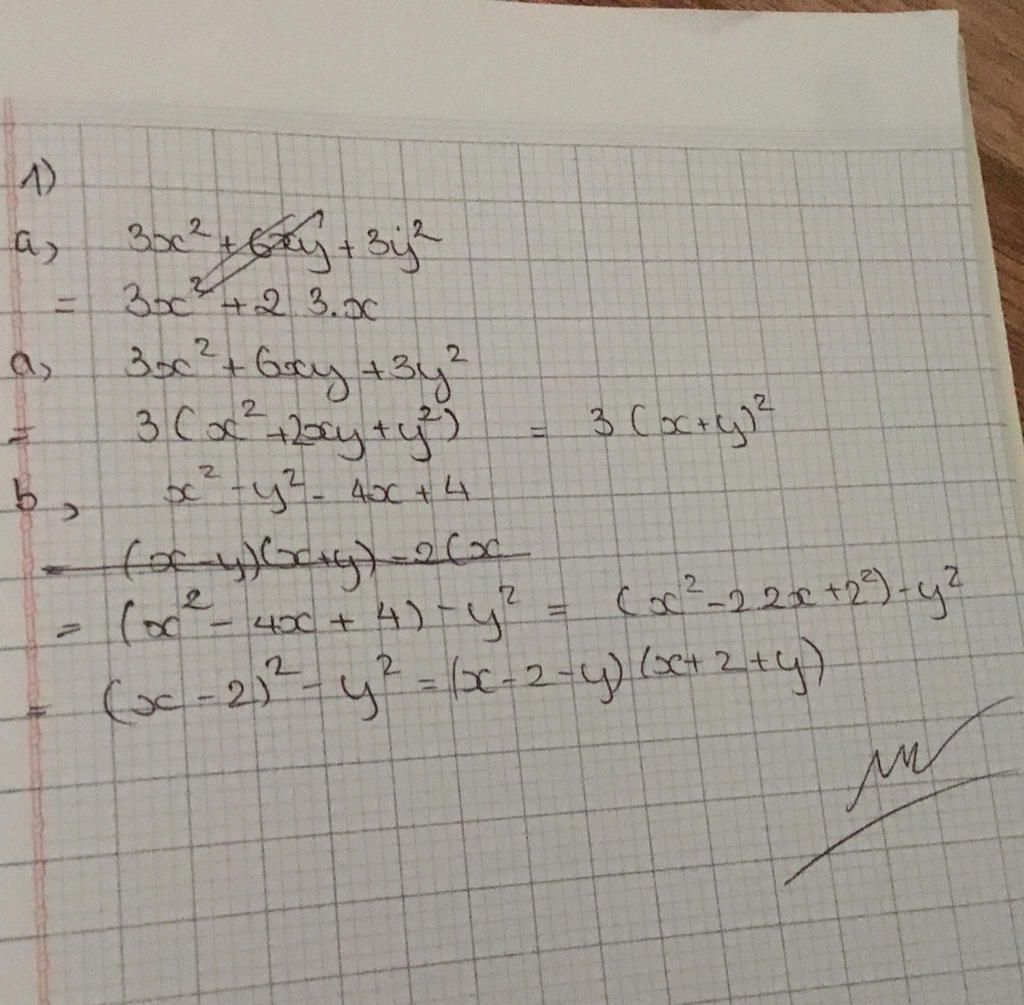 1)
a, 3x² + 6xy + 3y²
= 3x² + 2 3.x
a, 3x² + 6xy + 3y²
= 3(x² + 2xy + y²) = 3(x+y)²
b, x² - y² - 4x + 4
= (x-y)(x+y) - 2(x
= (x² - 4x + 4) - y² = (x² - 2 2x + 2²) - y²
= (x - 2)² - y² = (x - 2 - y)(x + 2 + y)